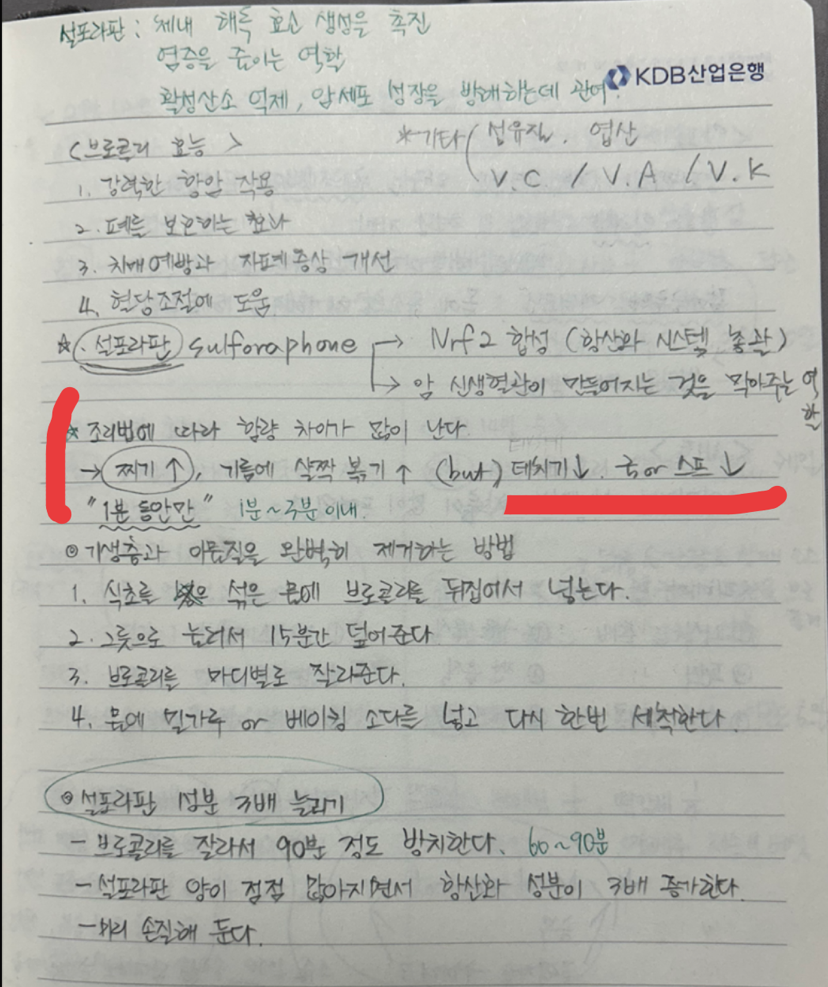 설포라판 : 체내 해독 효소 생성을 촉진
염증을 줄이는 역할
활성산소 억제, 암세포 성장을 방해하는데 관여.
KDB산업은행
<브로콜리 효능>
*기타 ( 섬유질, 엽산
V.C / V.A / V.K
1. 강력한 항암 작용
2. 폐를 보호하는 효과
3. 치매예방과 자폐증상 개선
4. 혈당조절에 도움
☆. 설포라판 sulforaphone → Nrf2 합성 (항산화 시스템 총괄)
→ 암 신생혈관이 만들어지는 것을 막아주는 역할
* 조리법에 따라 함량 차이가 많이 난다.
→ 찌기↑, 기름에 살짝 볶기↑ (but) 데치기↓. 국 or 스프↓
"1분 동안만" 1분~2분 이내.
◎ 기생충과 이물질을 완벽히 제거하는 방법
1. 식초를 섞은 물에 브로콜리를 뒤집어서 넣는다.
2. 그릇으로 눌러서 15분간 덮어준다
3. 브로콜리를 마디별로 잘라준다.
4. 물에 밀가루 or 베이킹 소다를 넣고 다시 한번 세척한다.
◎ 설포라판 성분 3배 늘리기
- 브로콜리를 잘라서 90분 정도 방치한다. 60~90분
- 설포라판 양이 점점 많아지면서 항산화 성분이 3배 증가한다.
- 미리 손질해 둔다.